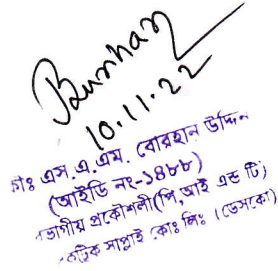 Burhan
10.11.22
মোঃ এস.এ.এম. বোরহান উদ্দিন
(আইডি নং-১৪৮৮)
বিভাগীয় প্রকৌশলী(পি,আই এন্ড টি)
সাপ্লাই কোঃ লিঃ (ডেসকো)